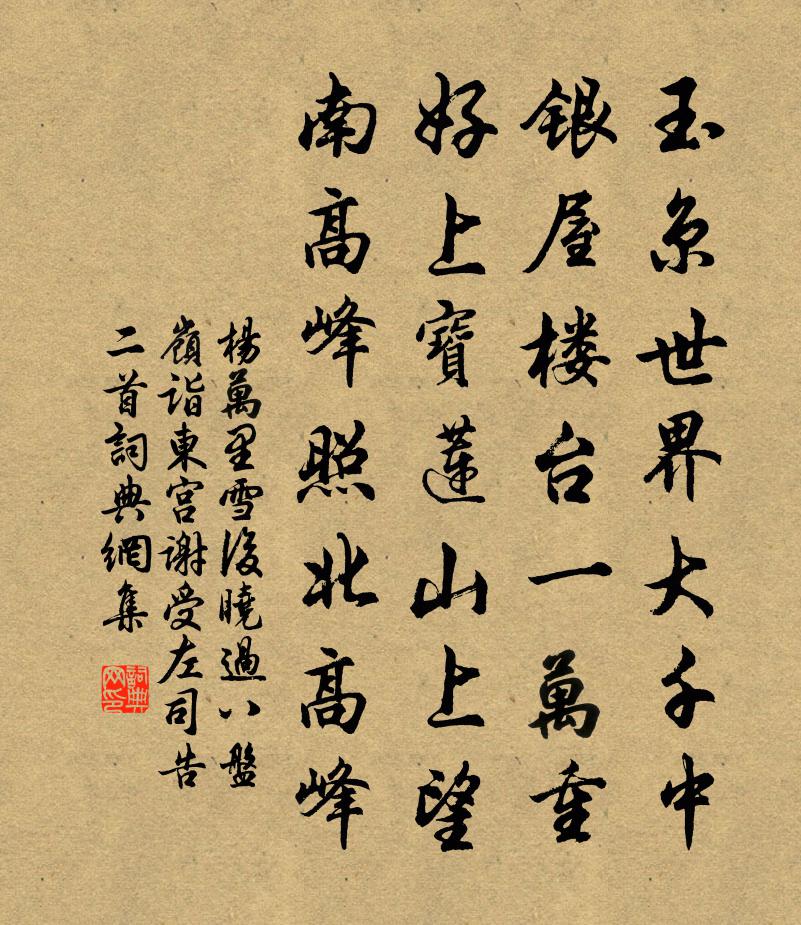 玉京世界大千中
銀屋楼台一萬重
好上寶蓮山上望
南高峰照北高峰
楊萬里雪後曉過八盤
嶺詣東宮谢受左司告
二首詞典網集
詞典网印